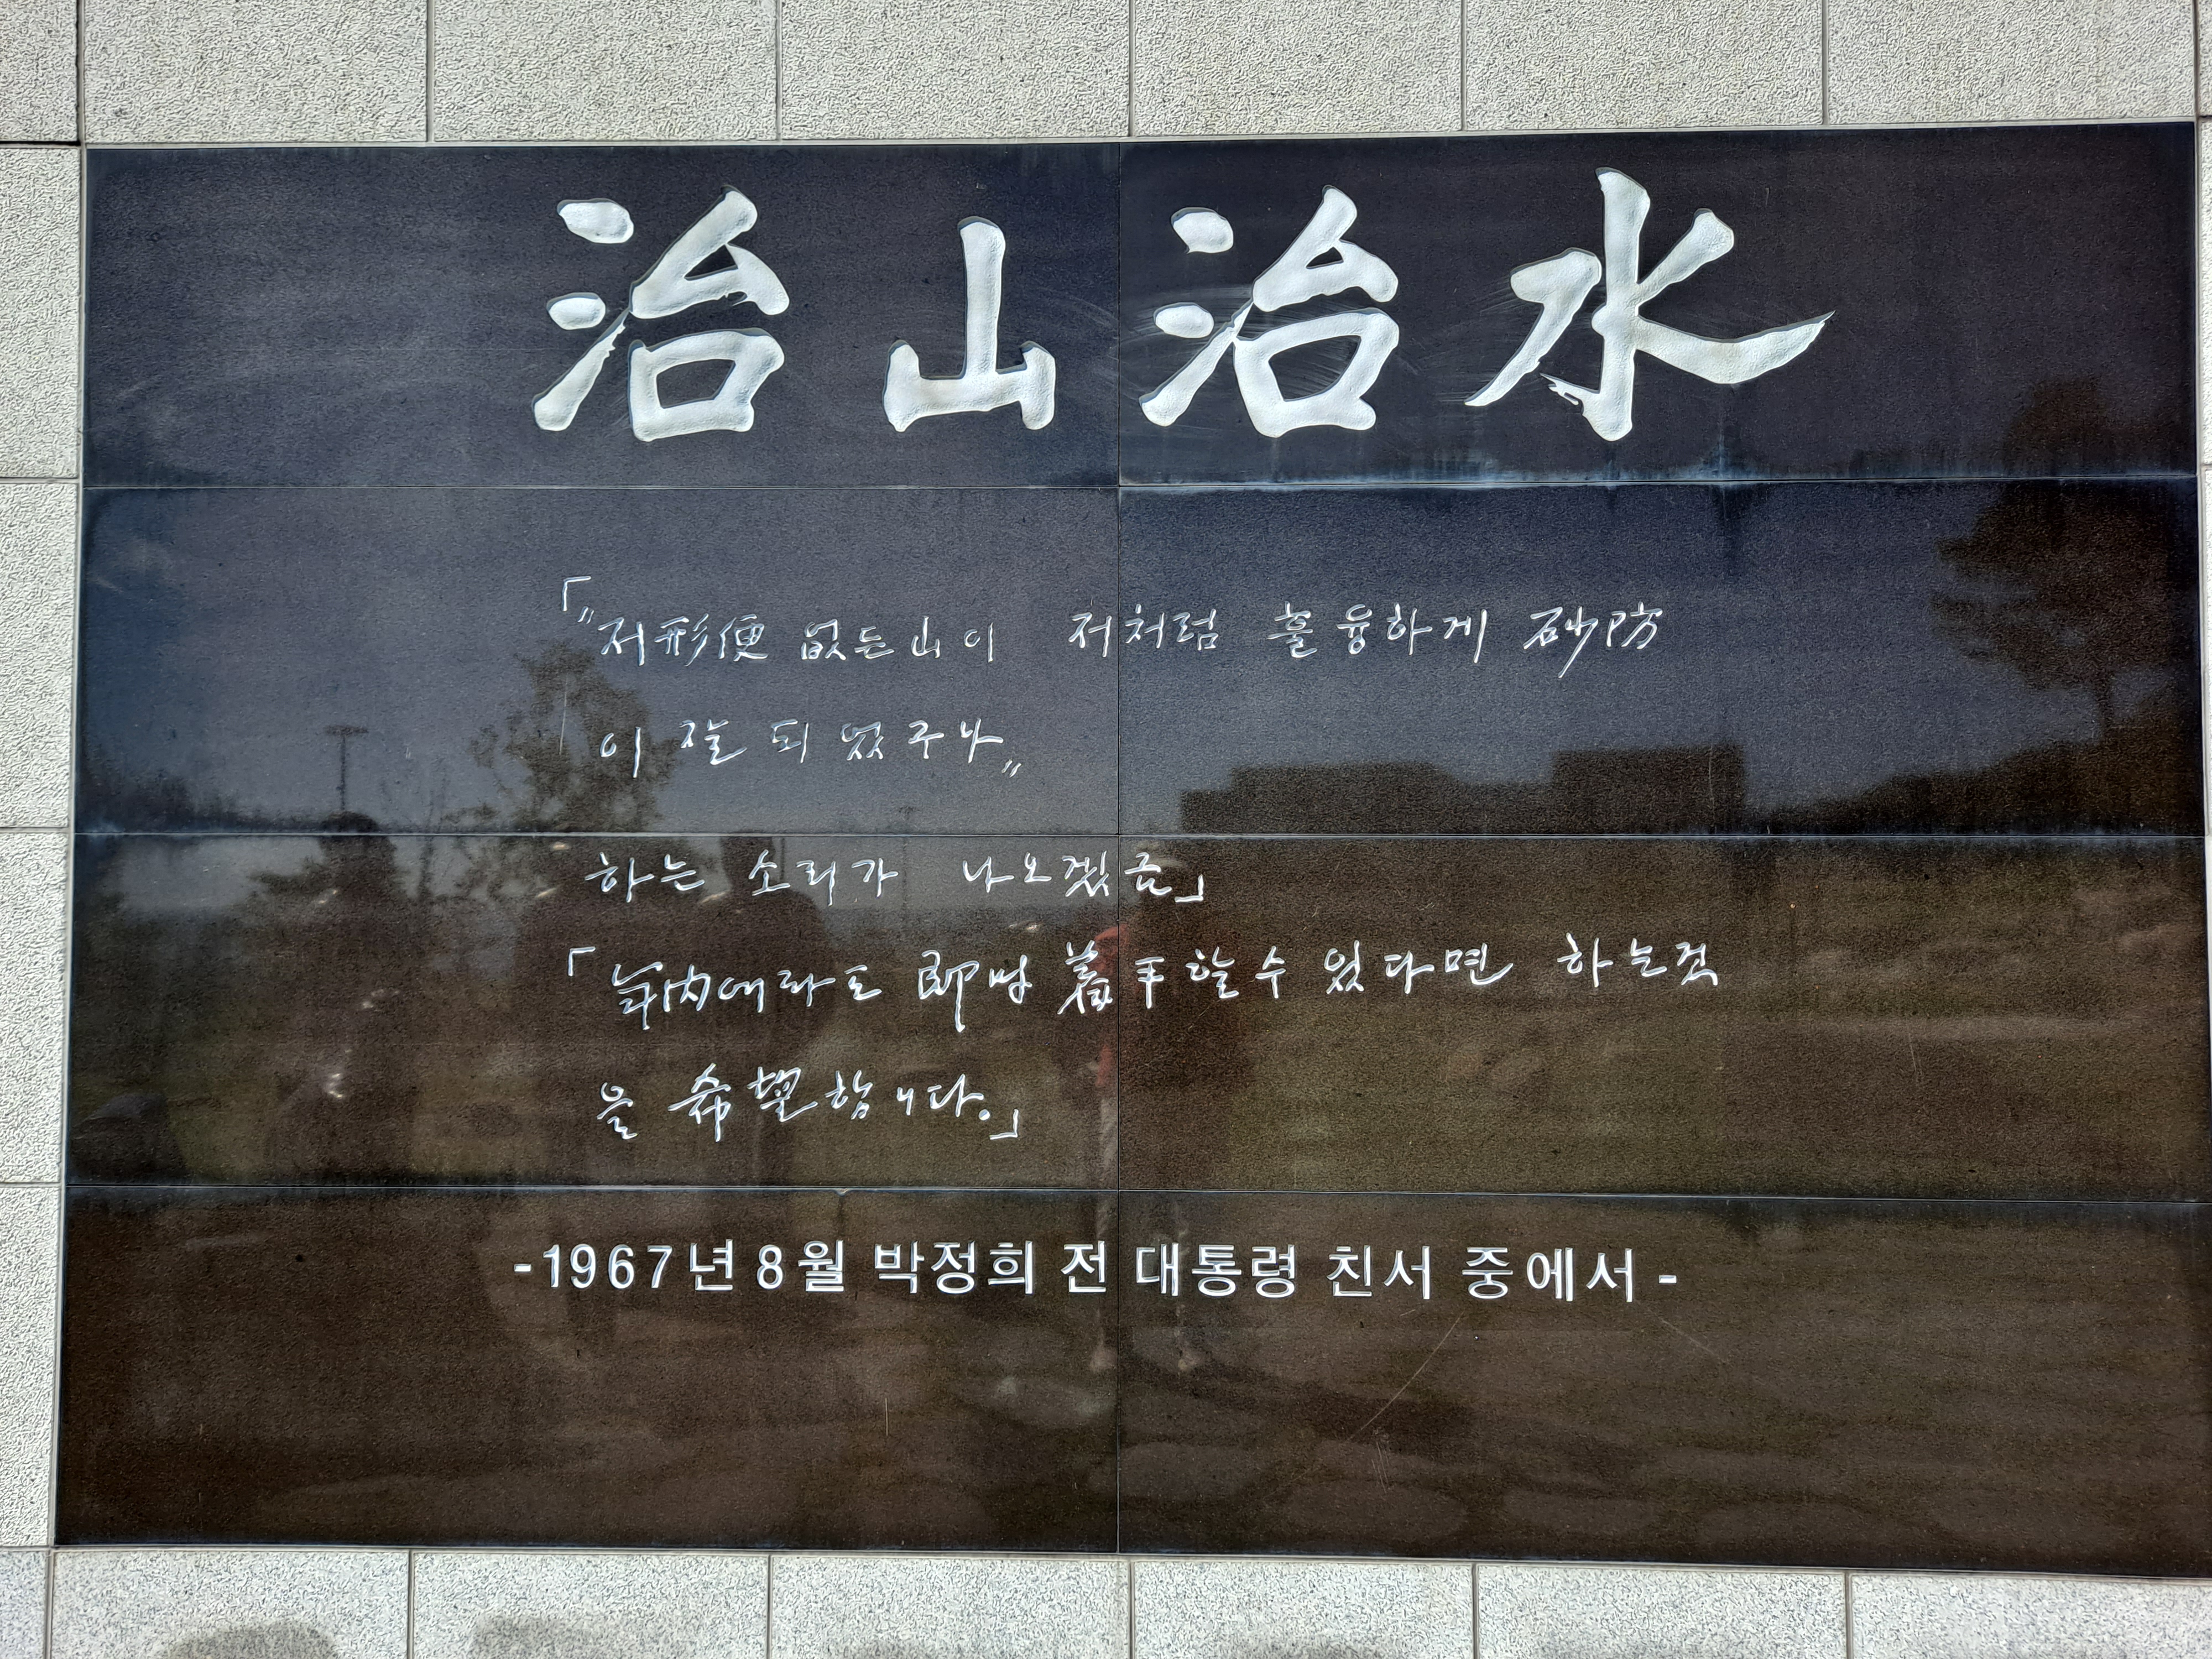 治山治水
「"저形便 없든 山이 저처럼 훌륭하게 砂防
이 잘 되었구나"
하는 소리가 나오겠금」
「年內에라도 即時 着手할 수 있다면 하는것
을 希望합니다.」
-1967년 8월 박정희 전 대통령 친서 중에서-